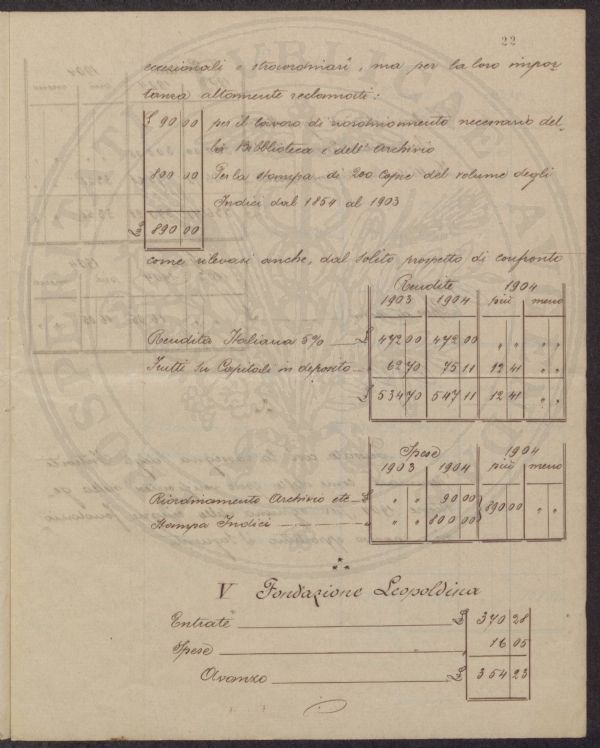 22
eccezionali e straordinarî, ma per la loro impor-
tanza altamente reclamati:
£ 90 00 per il lavoro di riordinamento necessario del-
la Bibblioteca e dell' Archivio
800 00 Per la stampa di 200 copie del volume degli
Indici dal 1854 al 1903
890 00
come rilevasi anche, dal solito prospetto di confronto
Rendite 1904
1903 1904 più meno
Rendita Italiana 5% £ 472 00 472 00 " " " "
Frutti su Capitali in deposito " 62 70 75 11 12 41 " "
£ 534 70 547 11 12 41 " "
Spese 1904
1903 1904 più meno
Riordinamento Archivio etc £ " " 90 00 890 00 " "
Stampa Indici " " " 800 00
V Fondazione Leopoldina
Entrate £ 370 28
Spese " 16 05
Avanzo £ 354 23